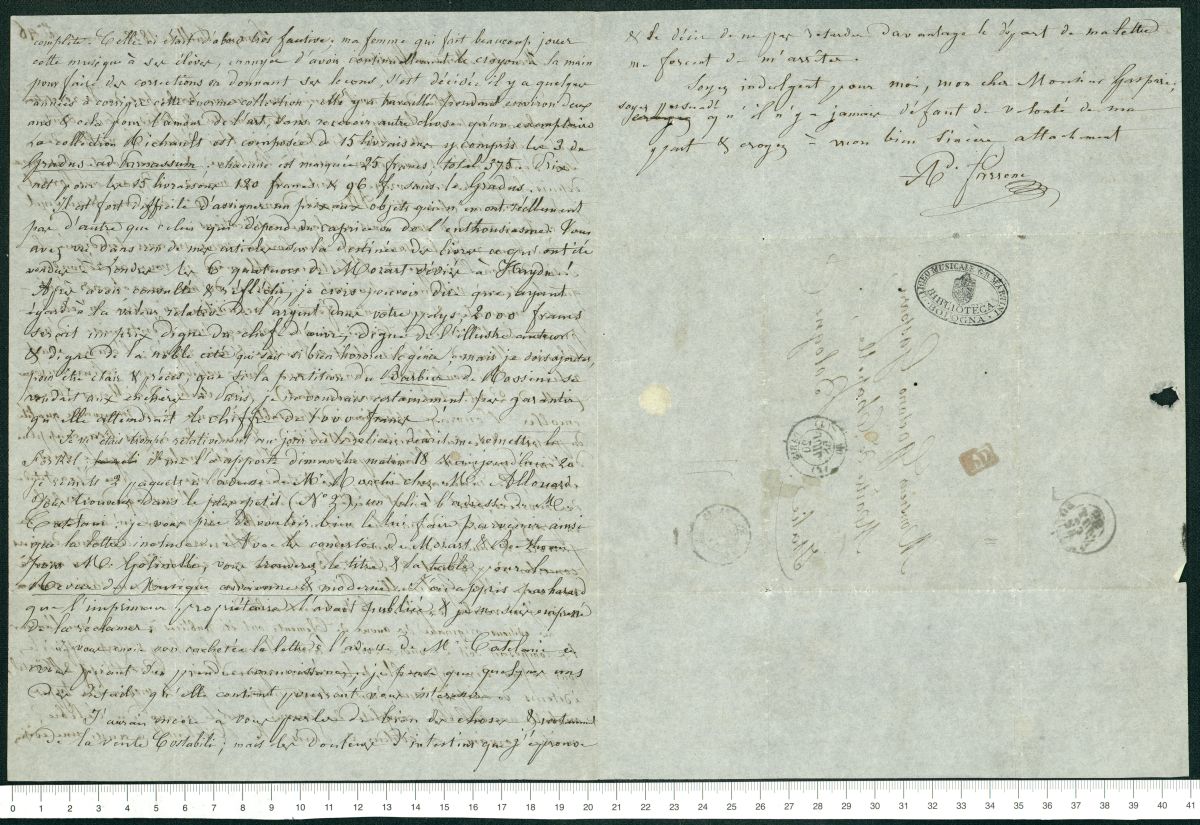 complète. Celle ci était d'abord très fautive; ma femme qui fait beaucoup jouer
cette musique à ses élèves, ennuyée d'avoir continuellement le crayon à la main
pour faire des corrections en donnant ses leçons s'est décidée il y a quelques
années à corriger cette énorme collection; elle y a travaillé pendant environ deux
ans & cela pour l'amour de l'art, sans recevoir autre chose qu'un exemplaire
La collection Richault est composée de 15 livraisons y compris les 3 du
Gradus ad Parnassum; chacune est marquée 25 francs, total 375. Prix
net pour les 15 livraisons 120 francs & 96 f sans le Gradus.
Il est fort difficile d'assigner un prix aux objets qui n'en ont réellement
pas d'autre que celui qui dépend du caprice ou de l'enthousiasme. Vous
avez vu dans un de mes articles sur la destinée des livres ce qu'ont été
vendus à Londres les 6 quatuors de Mozart dédiés à Haydn.
Après avoir consulté & réfléchi, je crois pouvoir dire que ayant
égard à la valeur relative de l'argent dans votre pays, 2000 francs
serait un prix digne du chef d'œuvre, digne de l'illustre auteur
& digne de la noble cité qui sait si bien honorer le génie; mais je dois ajouter,
pour être clair & précis, que si la partition du Barbier de Rossini se
vendait aux enchères à Paris, je ne voudrais certainement pas garantir
qu'elle attendrait le chiffre de 1000 francs.
Je m'étais trompé relativement au jour où le relieur devait me remettre le
Forkel: il me l'a apporté dimanche matin 18 & aujourd'hui 20
je remets 2 paquets à l'adresse de Mr chez Mr Allouard.
Vous trouverez dans le plus petit (No 2) un pli à l'adresse de Mr
Catelani; je vous prie de vouloir bien le lui faire parvenir ainsi
que la lettre incluse. Avec les concertos de Mozart & Beethoven
pour Mr Golinelli, vous trouverez le titre & la table pour la
Revue de Musique ancienne & moderne. J'ai appris par hasard
que l'imprimeur propriétaire l'avait publiée, & je me suis empressé
de la réclamer.
vous envoie non cachetée la lettre à l'adresse de Mr Catelani
en prendre connaissance; je pense que quelques uns
des détails qu'elle contient pourront vous intéresser.
J'aurais encore à vous parler de bien des choses &
de la vente Costabili; mais les douleurs d'intestins que j'éprouve
& le désir de ne pas retarder davantage le départ de ma lettre
me forcent de m'arrêter.
Soyez indulgent pour moi, mon cher Monsieur Gaspari;
soyez persuadé qu'il n'y a jamais défaut de volonté de ma
part & croyez à mon bien sincère attachement
Ad. Farrenc
LICEO MUSICALE G.B. MARTINI
BIBLIOTECA
BOLOGNA
Monsieur Gaetano Gaspari
Maître de Chapelle
à Bologne
Italie
0 1 2 3 4 5 6 7 8 9 10 11 12 13 14 15 16 17 18 19 20 21 22 23 24 25 26 27 28 29 30 31 32 33 34 35 36 37 38 39 40 41